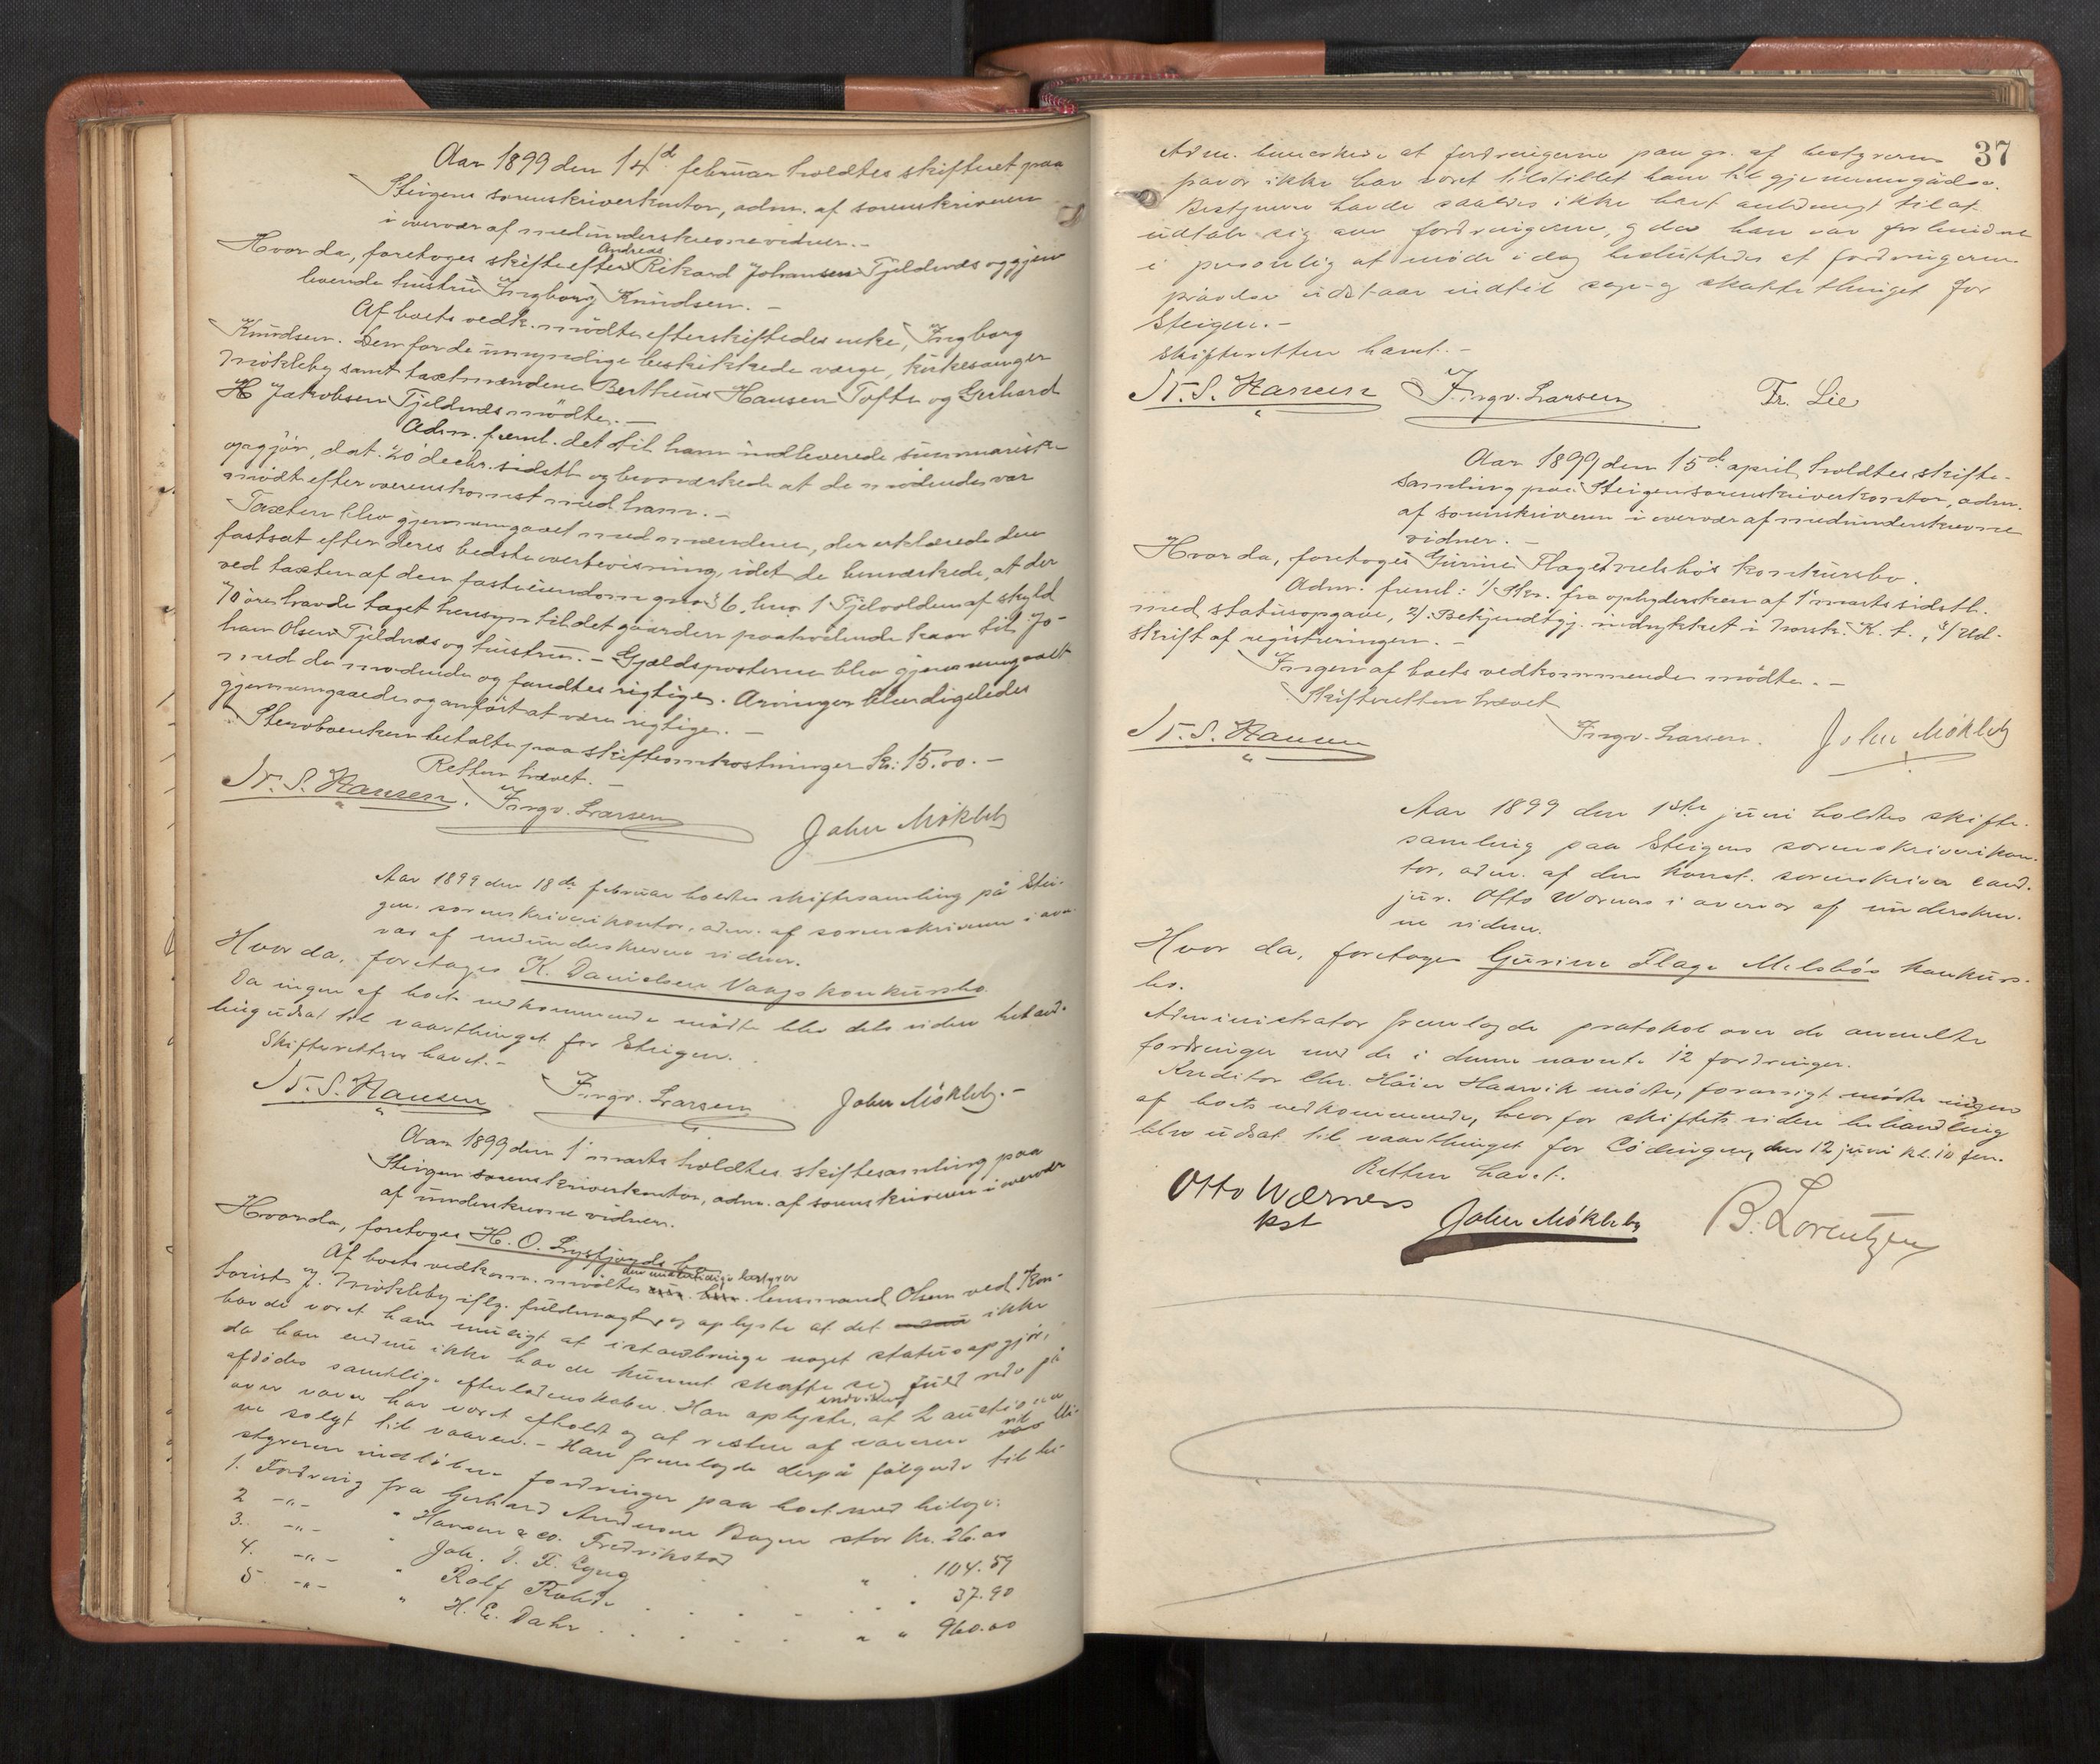 Aar 1899 den 14de februar holdtes skifteret paa
Steigens sorenskriverkontor, adm. af sorenskriveren
i overvær af medunderskrevne vidner. -
Hvor da, foretoges skifte efter Andreas Rikard Johansen Tjeldnæs og gjen-
levende hustru Ingborg Knudsen. -
Af boets vedk. mødte efterskiftedes enke, Ingborg
Knudsen. Den for de umyndige beskikkede værge, kirkesanger
Mökleby samt taxtmændene Bertheus Hansen Tofte og Gerhard
H Jakobsen Tjeldnæs mödte. -
Adm. freml. det til ham indleverede summariske
opgjör, dat. 20 decbr. sidstl. og bemærkede at de mödende var
mödt efter overenskomst med ham. -
Taxten blev gjennemgaaet med mændene, der erklærede den
fastsat efter deres bedste overbevisning, idet de bemærkede, at der
ved taxten af den faste eiendom gno 36, bno 1 Tjelvolden af skyld
70 öre havde taget hensyn til det gaarden paahvilende kaar til Jo-
han Olsen Tjeldnæs og hustru. - Gjældsposterne blev gjennemgaaet
med de mödende og fandtes rigtige. Arvinger blev ligeledes
gjennemgaaede og anfört at være rigtige. -
Stervboenken betalte paa skifteomkostninger Kr: 15.00. -
Retten hævet. -
N. S. Hansen. Ingv. Larsen John Mökleby
Aar 1899 den 18de februar holdtes skiftesamling på Stei-
gens sorenskriverikontor, adm. af sorenskriveren i over-
vær af medunderskrevne vidner.
Hvor da, foretoges K. Danielsen Vaags konkursbo.
Da ingen af boets vedkommende mödte blev dets videre behand-
ling udsat til vaarthinget for Steigen.
Skifteretten hævet. -
N. S. Hansen Ingv. Larsen John Mökleby. -
Aar 1899 den 1 marts holdtes skiftesamling paa
Steigen sorenskriverkontor, adm. af sorenskriveren i overvær
af underskrevne vidner.
Hvor da, foretoges H. O. Lysfjords bo
Af boets vedkomm. mödte den midlertidige bestyrer lensmand Olsen ved kon-
torist J. Mökleby iflg. fuldmagt, og oplyste at det ikke
havde voret ham muligt at istandbringe noget statusopgjör,
da han endnu ikke havde kunnet skaffe sig fuld rede på
afdödes samtlige efterladenskaber. Han oplyste endvidere, at 2 auktioner
over varer har voret afholdt og at resten af varerne vil bli-
ve solgt til vaaren. - Han fremlagde derpå fölgende til be-
styreren indlöbne fordringer paa boet med bilage:
1. Fordring fra Gerhard Andersen Bogen stor Kr. 26.00
2 -"- " Hansen & co. Fredrikstad " 104.59
3. -"- " Joh. D. F. Lyng " 37.90
4. -"- " Rolf Rohde
5 -"- " H. C. Dahr " " 960.00
37
Adm. bemerkede at fordringerne paa gr. af bestyrerens
fravær ikke har voret tilstillet ham til gjennemgåelse.
Bestyreren havde saaledes ikke havt anledning til at
udtale sig om fordringerne, og da han var forhindret
i personlig at möde i dag besluttedes at fordringernes
prövelse udstaar indtil sage- og skattethinget for
Steigen. -
Skifteretten hævet. -
N. S. Hansen Ingv. Larsen Fr. Lie
Aar 1899 den 15de april holdtes skifte-
samling paa Steigen sorenskriverkontor, adm.
af sorenskriveren i overvær af medunderskrevne
vidner. -
Hvor da, foretoges Gurine Flage Melshös konkursbo.
Adm. freml: 1/ Skr. fra opbydersken af 1 marts sidstl.
med statusopgave, 2/ Bekjendtgj. indrykket i Norsk. K. t., 3/ Ud-
skrift af registreringen. -
Ingen af boets vedkommende mödte. -
Skifteretten hævet
N. S. Hansen Ingv. Larsen. John Mökleby
Aar 1899 den 1ste juni holdtes skifte-
samling paa Steigens sorenskriverikon-
tor, adm. af den konst. sorenskriver cand.
jur. Otto Wærness i overvær af underskrev-
ne vidner.
Hvor da, foretoges Gurine Flage Melshös konkurs-
bo.
Administrator fremlagde protokol over de anmeldte
fordringer med de i denne nævnte 12 fordringer.
Kreditor Chr. Höier Haarvik mödte, forövrigt mödte ingen
af boets vedkommende, hvorfor skiftets videre behandling
blev udsat til vaarthinget for Lödingen, den 12 juni kl. 10 fm.
Retten hævet.
Otto Wærness
kst John Mökleby B. Lorentzen